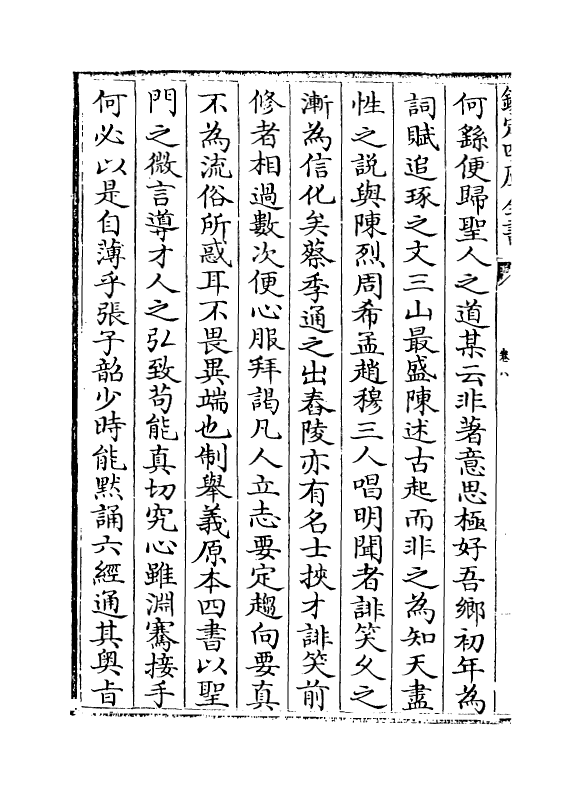 欽定四庫全書
卷八
何繇便歸聖人之道某云非著意思極好吾鄉初年為
詞賦追琢之文三山最盛陳述古起而非之為知天盡
性之説與陳烈周希孟趙穆三人唱明聞者誹笑乆之
漸為信化矣蔡季通之出舂陵亦有名士挾才誹笑前
修者相過數次便心服拜謁凡人立志要定趨向要真
不為流俗所惑耳不畏異端也制舉義原本四書以聖
門之微言導才人之弘致苟能真切究心雖淵騫接手
何必以是自薄乎張子韶少時能默誦六經通其奥㫖